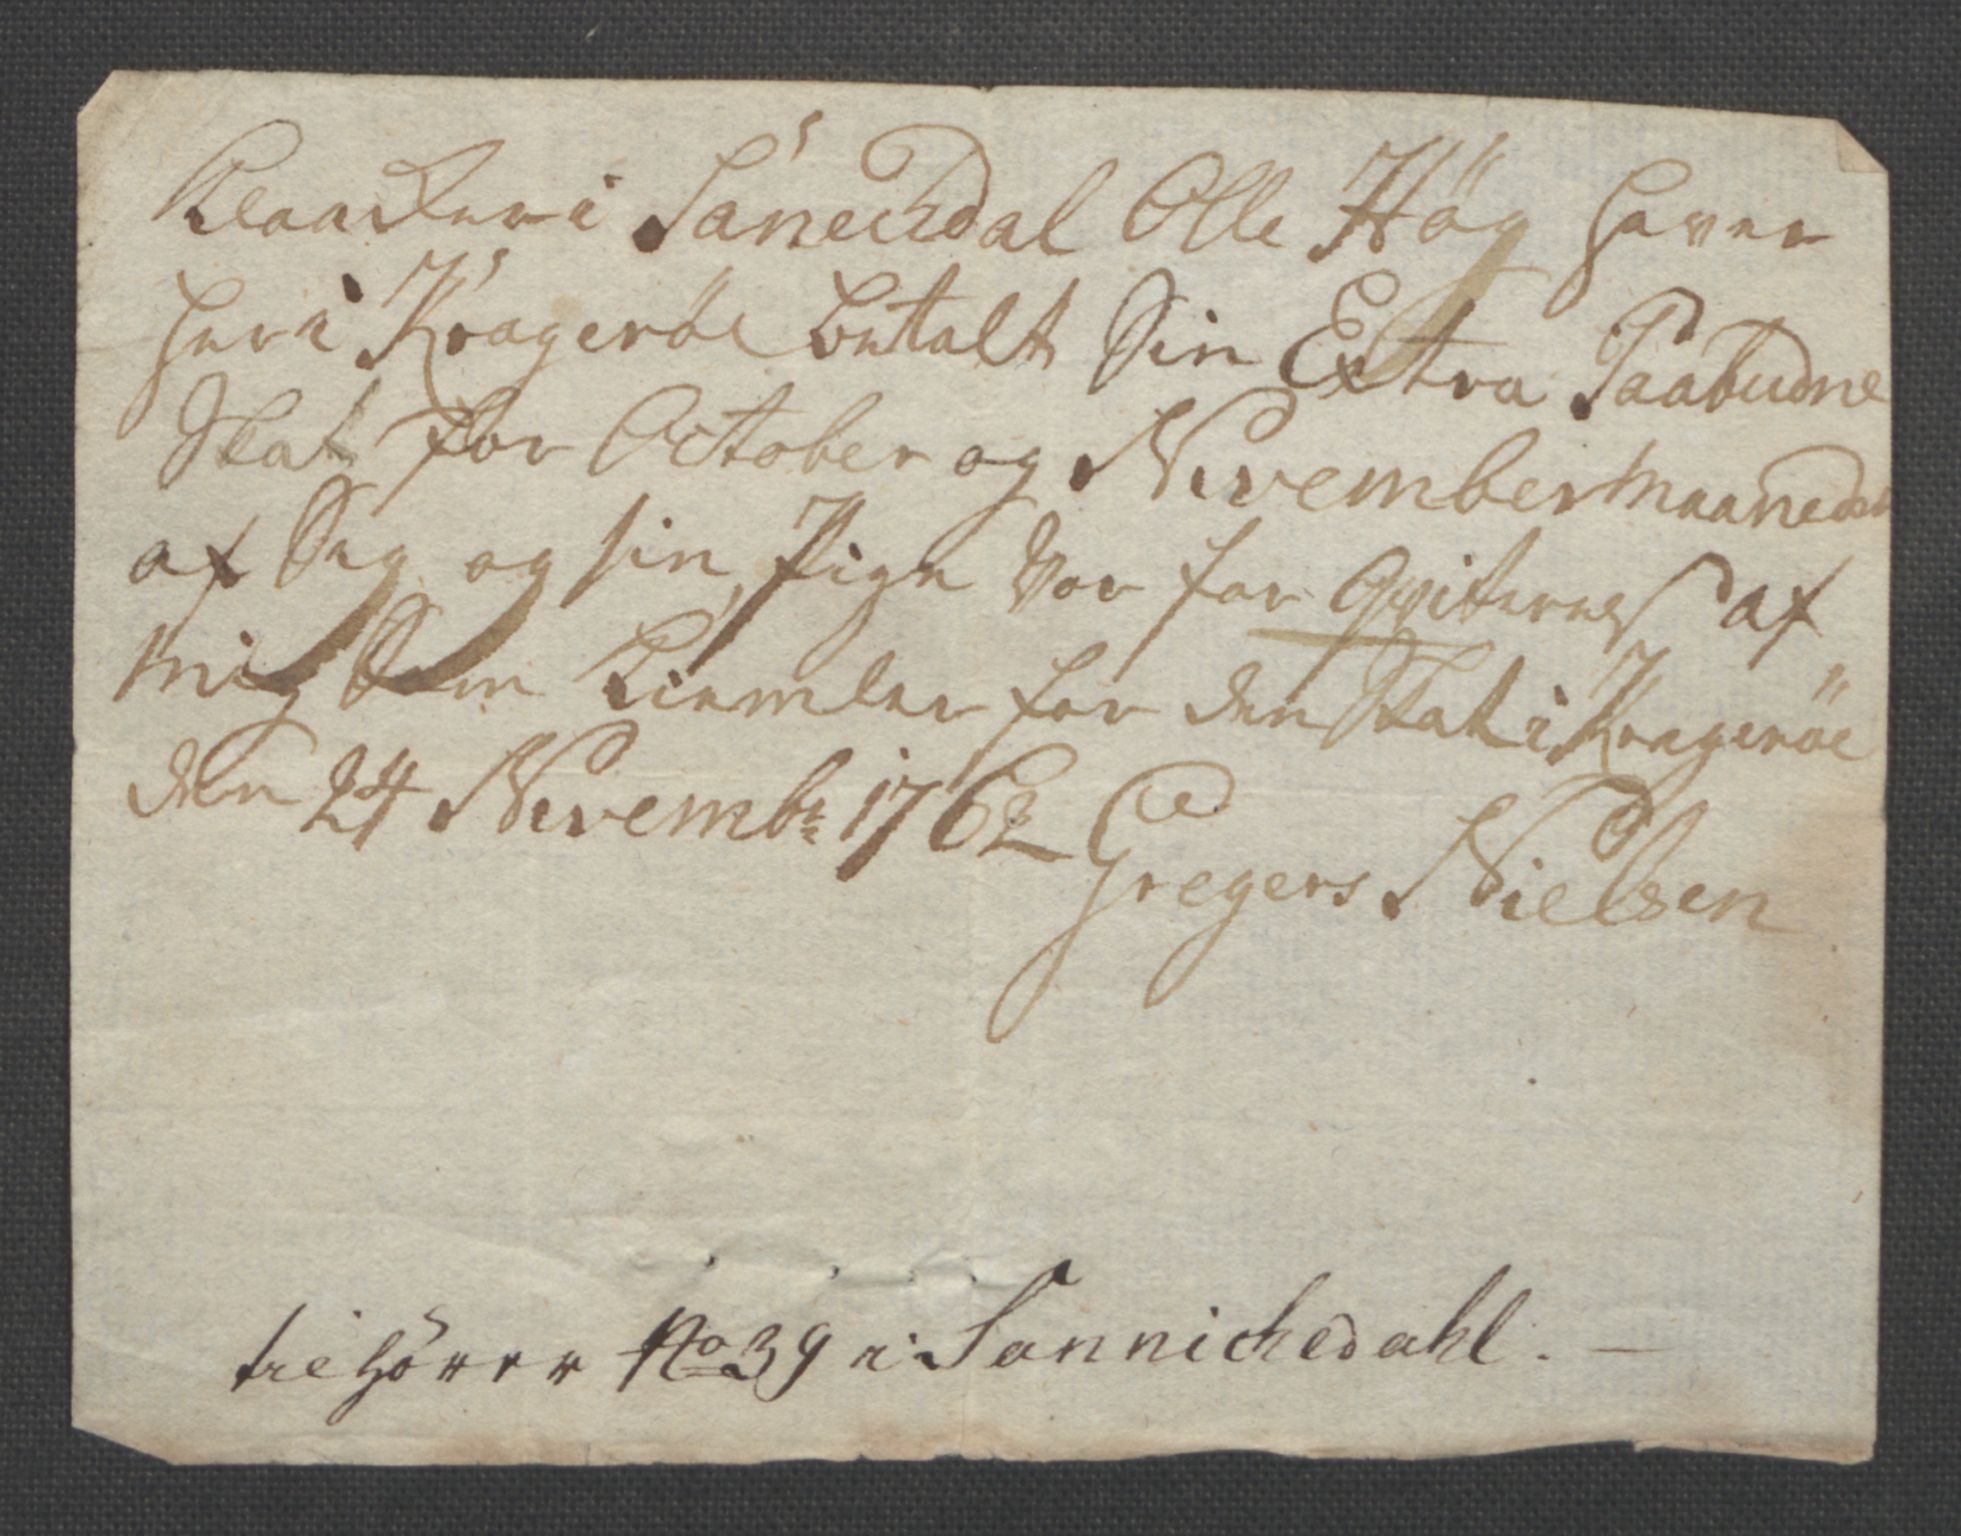 Klocker i Sanechdal Olle Hög haver
her i Krageröe betalt Sin Extra Paabudne
Skat for October og November Maaneder
af Sig og sin Pige Vor for Qviteres af
mig Som for den Skat i Krageröe
den 24 Novembr: 1762 Gregers Nielsen
til hörer No 39 i Sannichedahl. —